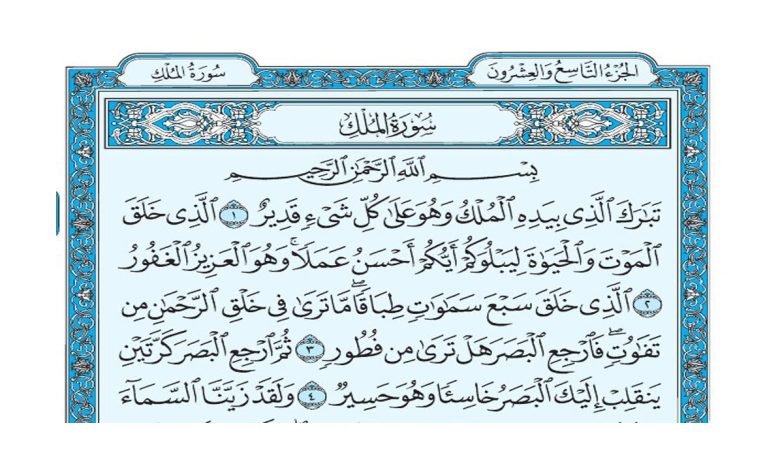 الجُزْءُ التَّاسِعُ وَالعِشْرُونَ
سُورَةُ المُلْكِ
سُورَةُ المُلْكِ
بِسْمِ ٱللَّهِ ٱلرَّحْمَٰنِ ٱلرَّحِيمِ
تَبَٰرَكَ ٱلَّذِى بِيَدِهِ ٱلْمُلْكُ وَهُوَ عَلَىٰ كُلِّ شَىْءٍ قَدِيرٌ ١ ٱلَّذِى خَلَقَ
ٱلْمَوْتَ وَٱلْحَيَوٰةَ لِيَبْلُوَكُمْ أَيُّكُمْ أَحْسَنُ عَمَلًا ۚ وَهُوَ ٱلْعَزِيزُ ٱلْغَفُورُ
٢ ٱلَّذِى خَلَقَ سَبْعَ سَمَٰوَٰتٍ طِبَاقًا ۖ مَّا تَرَىٰ فِى خَلْقِ ٱلرَّحْمَٰنِ مِن
تَفَٰوُتٍ ۖ فَٱرْجِعِ ٱلْبَصَرَ هَلْ تَرَىٰ مِن فُطُورٍ ٣ ثُمَّ ٱرْجِعِ ٱلْبَصَرَ كَرَّتَيْنِ
يَنقَلِبْ إِلَيْكَ ٱلْبَصَرُ خَاسِئًا وَهُوَ حَسِيرٌ ٤ وَلَقَدْ زَيَّنَّا ٱلسَّمَآءَ